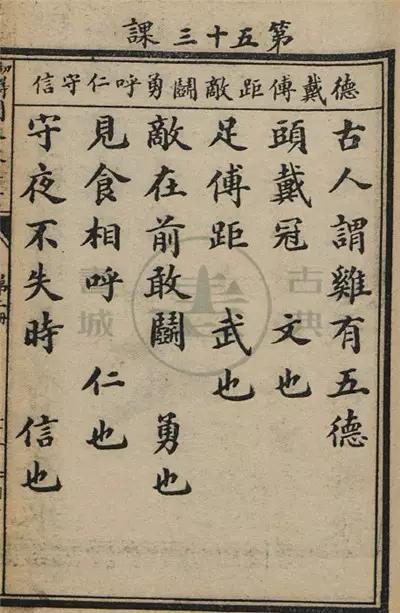 第五十三課
德戴傅距敵鬬勇呼仁守信
古人謂雞有五德
頭戴冠 文也
足傅距 武也
敵在前敢鬬 勇也
見食相呼 仁也
守夜不失時 信也
古典
書城